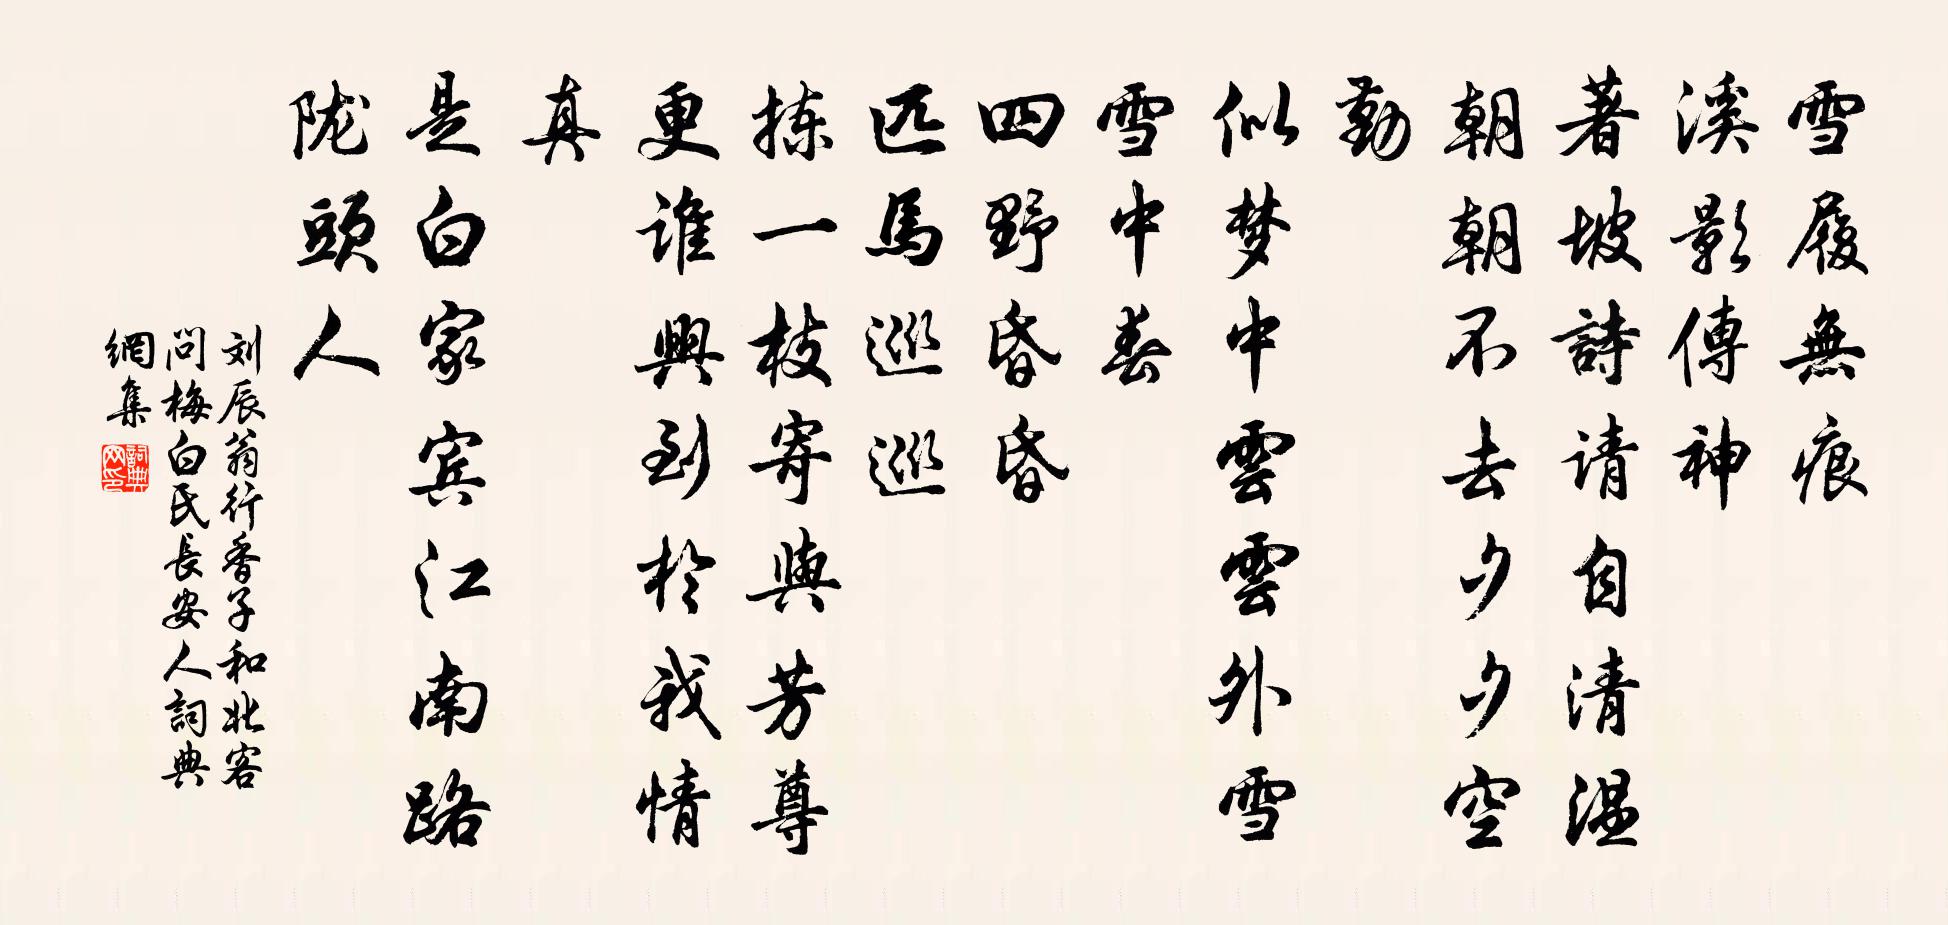 雪履無痕
溪影傳神
著坡詩请自清温
朝朝不去夕夕空
勤
似梦中雲雲外雪
雪中春
四野昏昏
匹馬巡巡
拣一枝寄與芳尊
更谁興到於我情
真
是白家宾江南路
陇頭人
刘辰翁行香子和北客
问梅白氏長安人詞典
網集
詞典网印